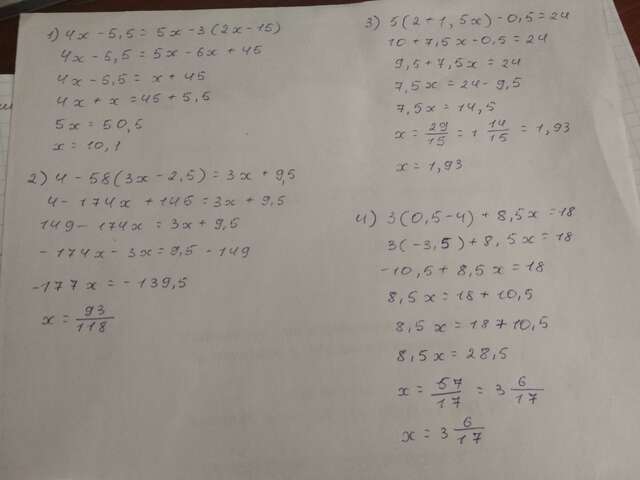 1) 4x - 5,5 = 5x - 3(2x - 15)
4x - 5,5 = 5x - 6x + 45
4x - 5,5 = x + 45
4x + x = 45 + 5,5
5x = 50,5
x = 10,1
2) 4 - 58(3x - 2,5) = 3x + 9,5
4 - 174x + 145 = 3x + 9,5
149 - 174x = 3x + 9,5
- 174x - 3x = 9,5 - 149
-177x = - 139,5
x = 93/118
3) 5(2 + 1,5x) - 0,5 = 24
10 + 7,5x - 0,5 = 24
9,5 + 7,5x = 24
7,5x = 24 - 9,5
7,5x = 14,5
x = 29/15 = 1 14/15 = 1,93
x = 1,93
4) 3(0,5 - 4) + 8,5x = 18
3(-3,5) + 8,5x = 18
-10,5 + 8,5x = 18
8,5x = 18 + 10,5
8,5x = 18 + 10,5
8,5x = 28,5
x = 57/17 = 3 6/17
x = 3 6/17